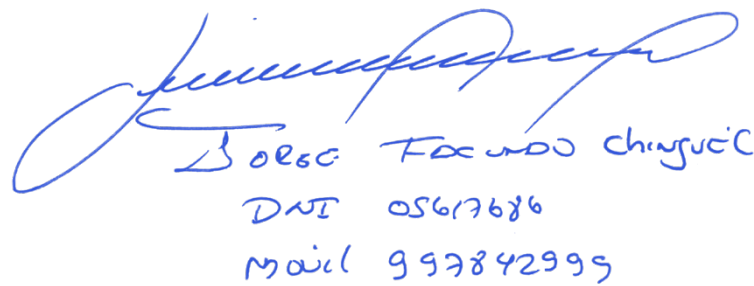 JORGE FACUNDO Chinguel
DNI 05617686
Movil 997842999